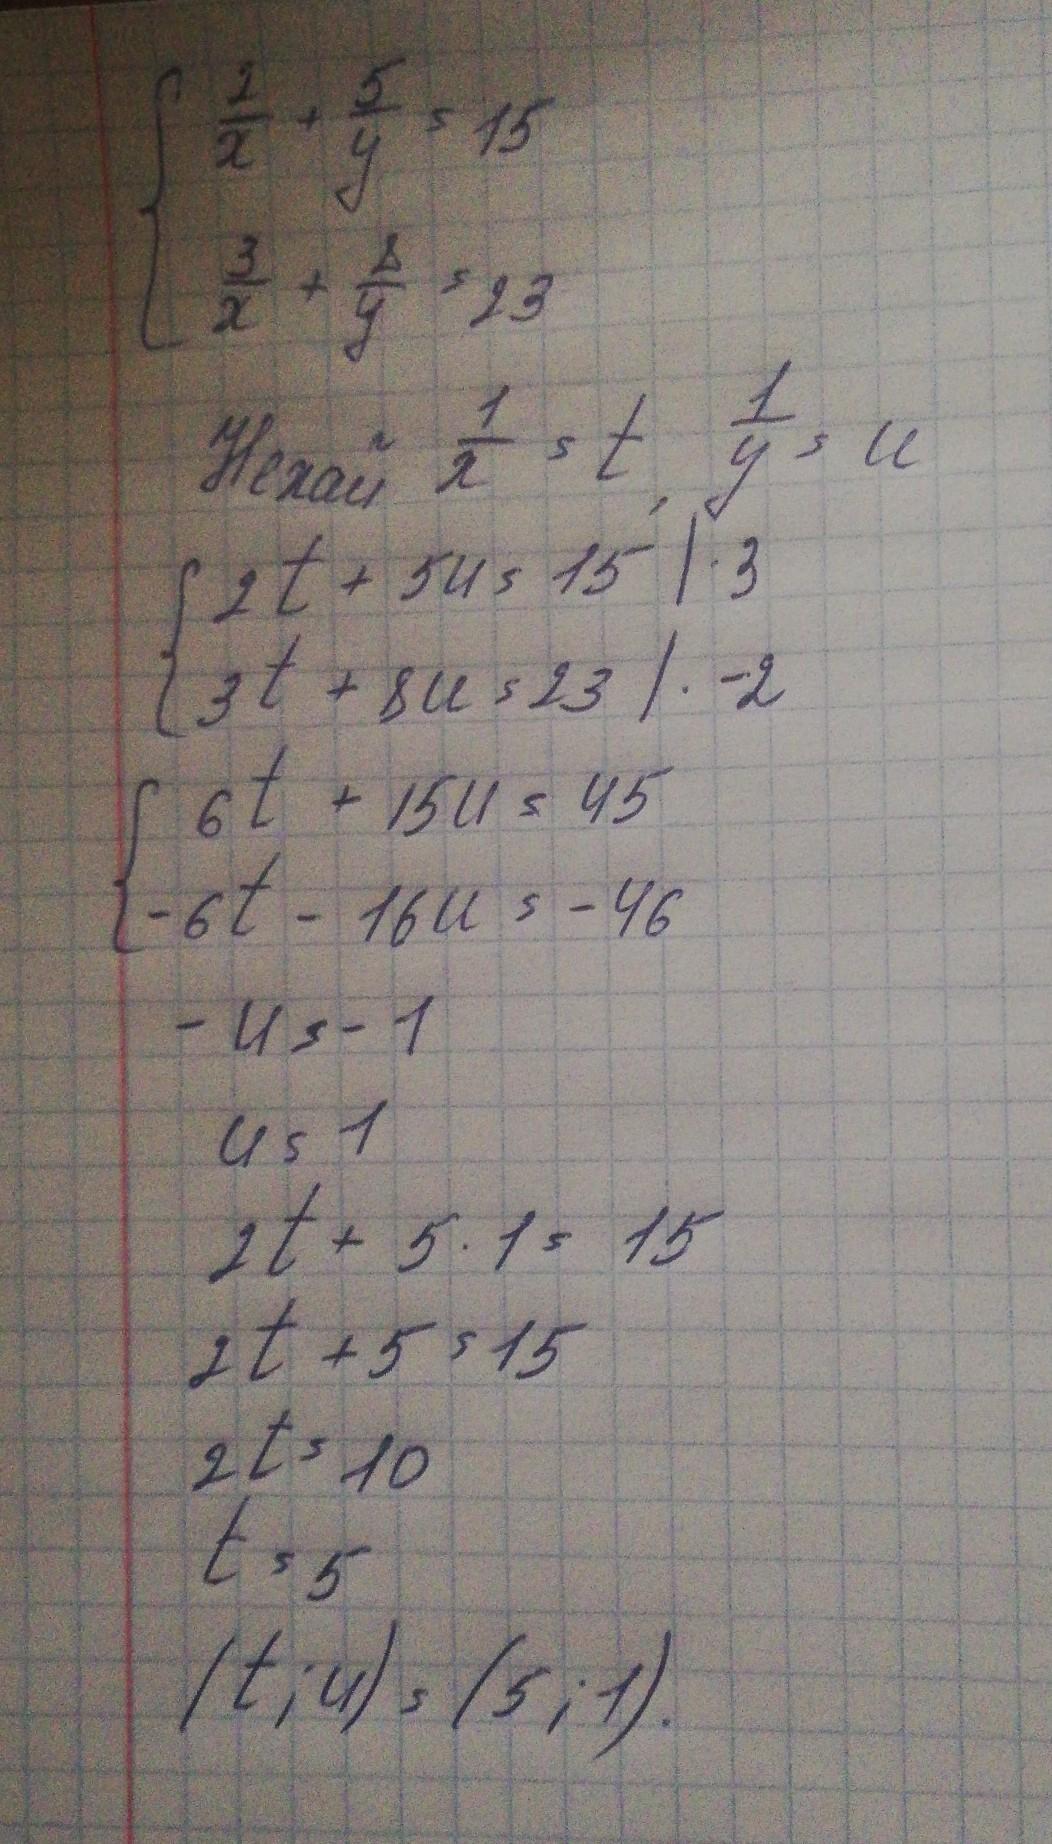 2/x + 5/y = 15
3/x + 8/y = 23
Нехай 1/x = t, 1/y = u
2t + 5u = 15 | · 3
3t + 8u = 23 | · -2
6t + 15u = 45
-6t - 16u = -46
-u = -1
u = 1
2t + 5 · 1 = 15
2t + 5 = 15
2t = 10
t = 5
(t; u) = (5; 1).